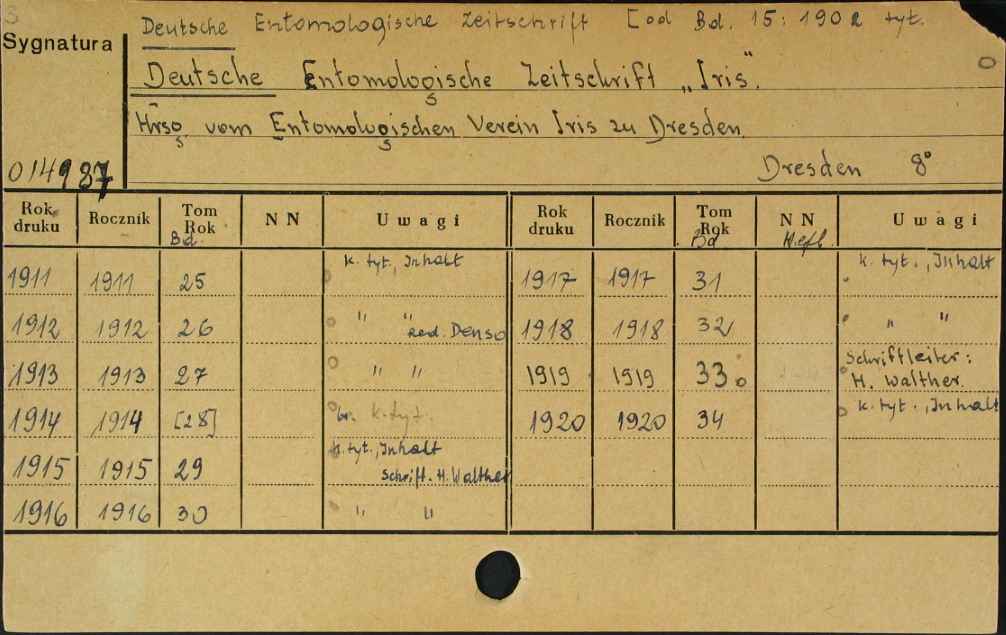 Deutsche Entomologische Zeitschrift [od Bd. 15: 1902 tyt.
Sygnatura
Deutsche Entomologische Zeitschrift „Iris".
Hrsg. vom Entomologischen Verein Iris zu Dresden.
014987 Dresden 8°
Rok druku Rocznik Tom Rok Bd. NN Uwagi Rok druku Rocznik Tom Rok Bd NN Heft. Uwagi
1911 1911 25 k. tyt., Inhalt 1917 1917 31 k. tyt., Inhalt
1912 1912 26 " " red. Denso 1918 1918 32 " "
1913 1913 27 " " 1919 1919 33. Schriftleiter: H. Walther.
1914 1914 [28] br. k. tyt. 1920 1920 34 k. tyt., Inhalt
1915 1915 29 k. tyt., Inhalt Schrift. H. Walther
1916 1916 30 " "